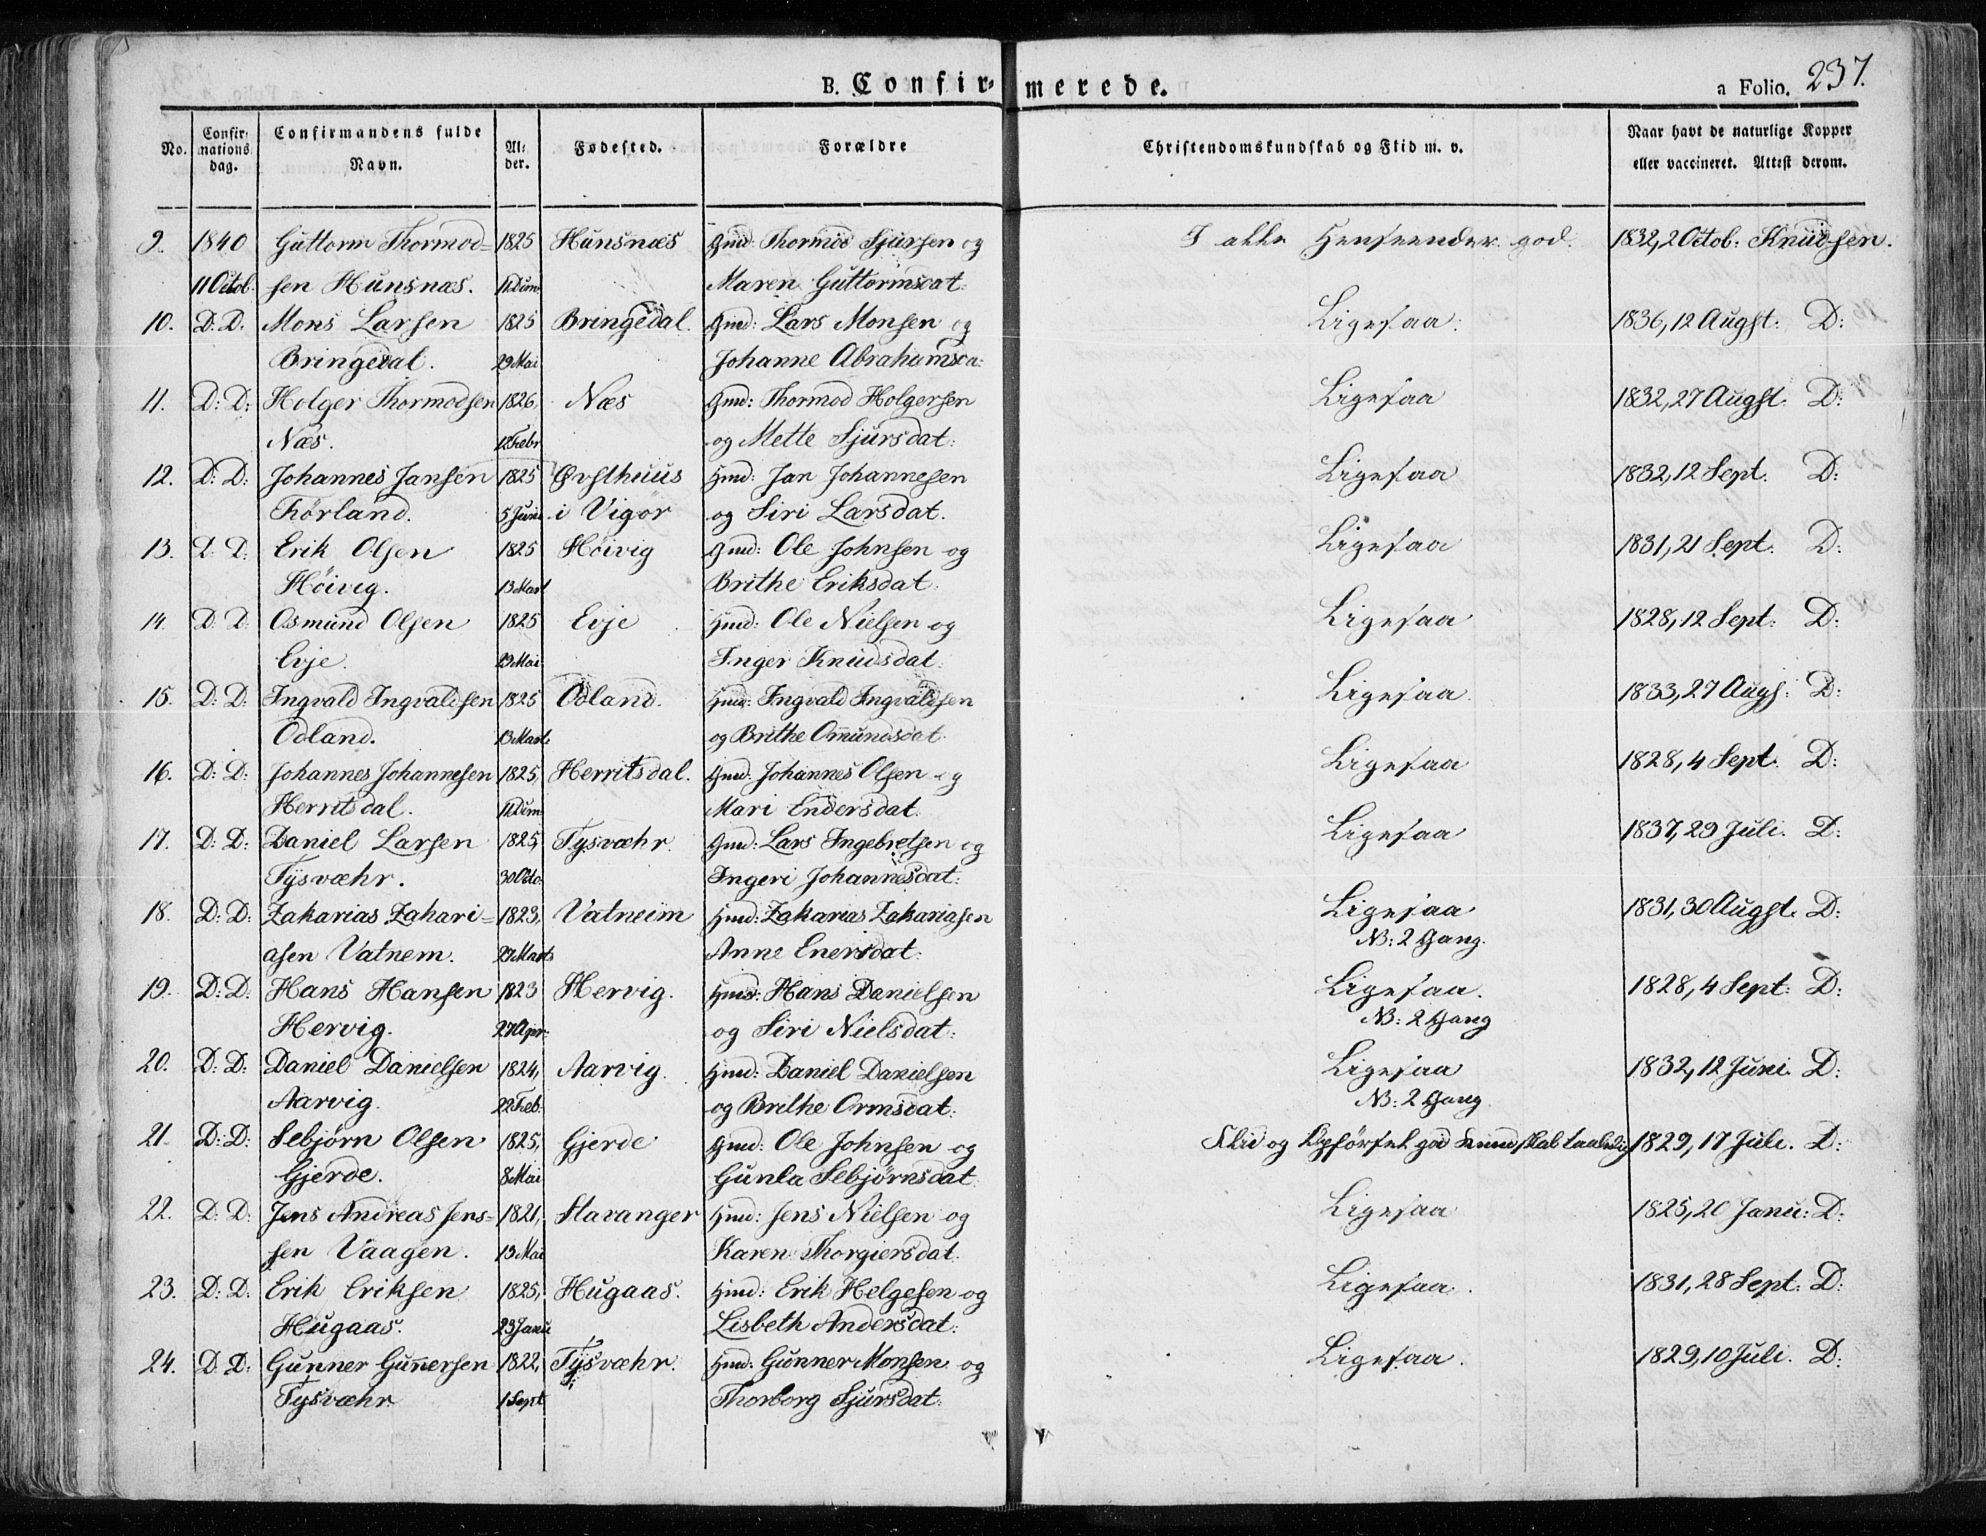 B. Confirmerede.
a Folio. 237.
No. Confirmations dag. Confirmandens fulde Navn. Alder. Fødested. Forældre Christendomskundskab og Flid m. v. Naar havt de naturlige Kopper eller vaccineret. Attest derom.
9. 1840 Guttorm Thormod= 1825 Hunsnæs Gmd: Thormod Sjursen og I alle Henseender god. 1832, 2 Octob: Knudsen.
11 Octob. sen Hunsnæs. Maren Guttormsdat:
10. D: D. Mons Larsen 1825 Bringedal. Gmd: Lars Monsen og Ligesaa. 1836, 12 Augst: D:
Bringedal. 29 Mai Johanne Abrahamsda:
11. D: D: Holger Thormodsen 1826, Næs Gmd: Thormod Holgersen Ligesaa 1832, 27 Augst. D:
Næs. 12 Febr og Mette Sjursdat:
12. D: D: Johannes Jansen 1825 Øvsthuus Hmd: Jan Johannesen Ligesaa 1832, 12 Sept. D:
Førland. 5 Juni i Vigør og Siri Larsdat.
13. D. D. Erik Olsen 1825 Høivig Gmd: Ole Johnsen og Ligesaa 1831, 21 Sept. D:
Høivig. 13 Mart Brithe Eriksdat.
14. D. D. Osmund Olsen 1825 Evje Hmd: Ole Nielsen og Ligesaa 1828, 12 Sept: D:
Evje. 29 Mai Inger Knudsdat.
15. D: D: Ingvald Ingvaldsen 1825 Odland. Hmd: Ingvald Ingvaldsen Ligesaa. 1833, 27 Augs: D:
Odland. 13 Mart. og Brithe Omundsdat.
16. D: D: Johannes Johannesen 1825 Herritsdal. Gmd: Johannes Olsen og Ligesaa 1828, 4 Sept. D:
Herritsdal. Mari Endersdat.
17. D: D: Daniel Larsen 1825, Tysvæhr. Gmd: Lars Ingebretsen og Ligesaa 1837, 29 Juli. D:
Tysvæhr. 30 Octo. Ingeri Johannesdat:
18. D: D: Zakarias Zahari= 1823, Vatneim Hmd: Zakarias Zakariasen Ligesaa 1831, 30 Augst. D:
asen Vatnem. 29 Marts Anne Enersdat: NB: 2 Gang.
19. D: D: Hans Hansen 1823 Hervig. Hmd: Hans Danielsen Ligesaa. 1828, 4 Sept: D:
Hervig. 27 Apr: og Siri Nielsdat: NB: 2 Gang
20. D: D: Daniel Danielsen 1824, Aarvig. Hmd: Daniel Danielsen Ligesaa 1832, 12 Juni. D:
Aarvig. 22 Feb: og Brithe Ormsdat: NB: 2 Gang.
21. D: D: Sebjørn Olsen 1825, Gjerde Gmd: Ole Johnsen og Flid og Opførsel god Kundskab taalelig 1829, 17 Juli. D:
Gjerde. 8 Mai Gunla Sebjørnsdat.
22. D: D. Jens Andreas Jens= 1821, Stavanger Hmd: Jens Nielsen og Ligesaa 1825, 20 Janu: D:
sen Vaagen. 13 Mai Karen Thorgiersdat.
23. D: D. Erik Eriksen 1825, Hugaas. Hmd: Erik Helgesen og Ligesaa. 1831, 28 Sept: D:
Hugaas. 23 Janu Lisbeth Andersdat:
24. D. D. Gunner Gunnersen 1822, Tysvæhr. Hmd: Gunner Monsen og Ligesaa. 1829, 10 Juli. D:
Tysvæhr 1 Sept Thorborg Sjursdat: